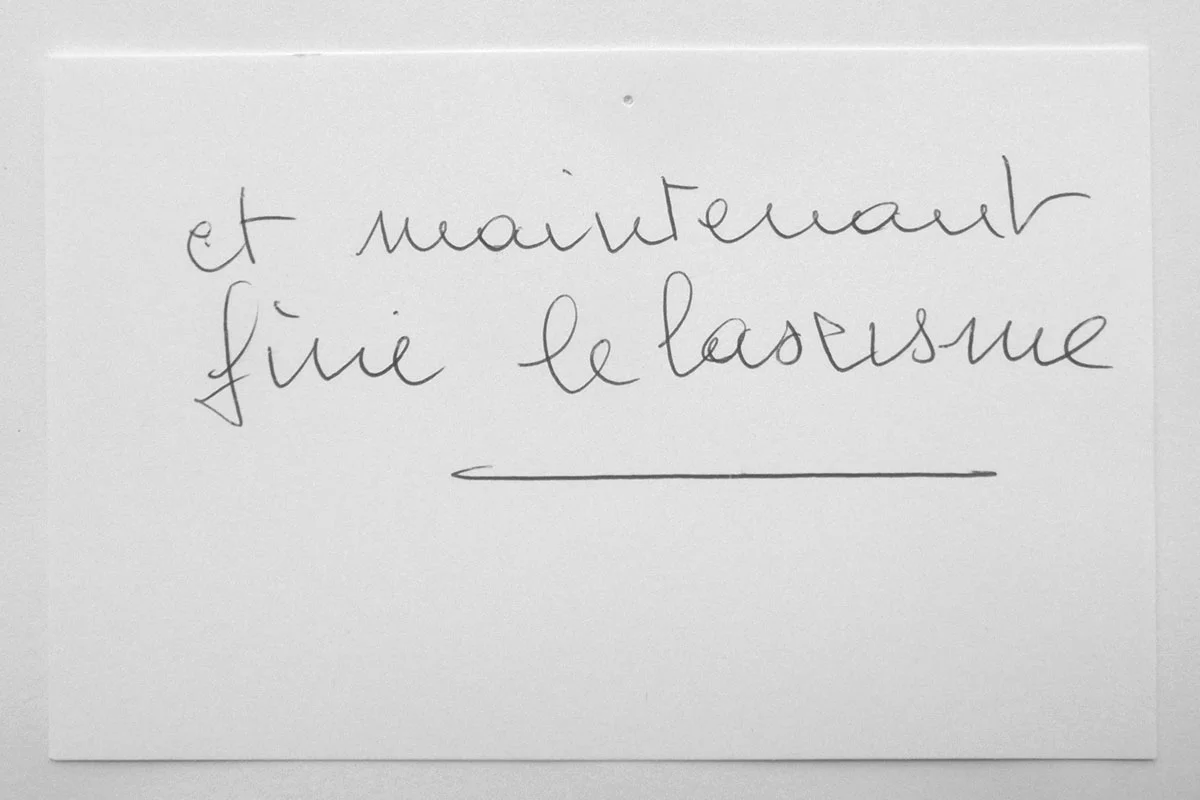 et maintenant
finie le lascisme